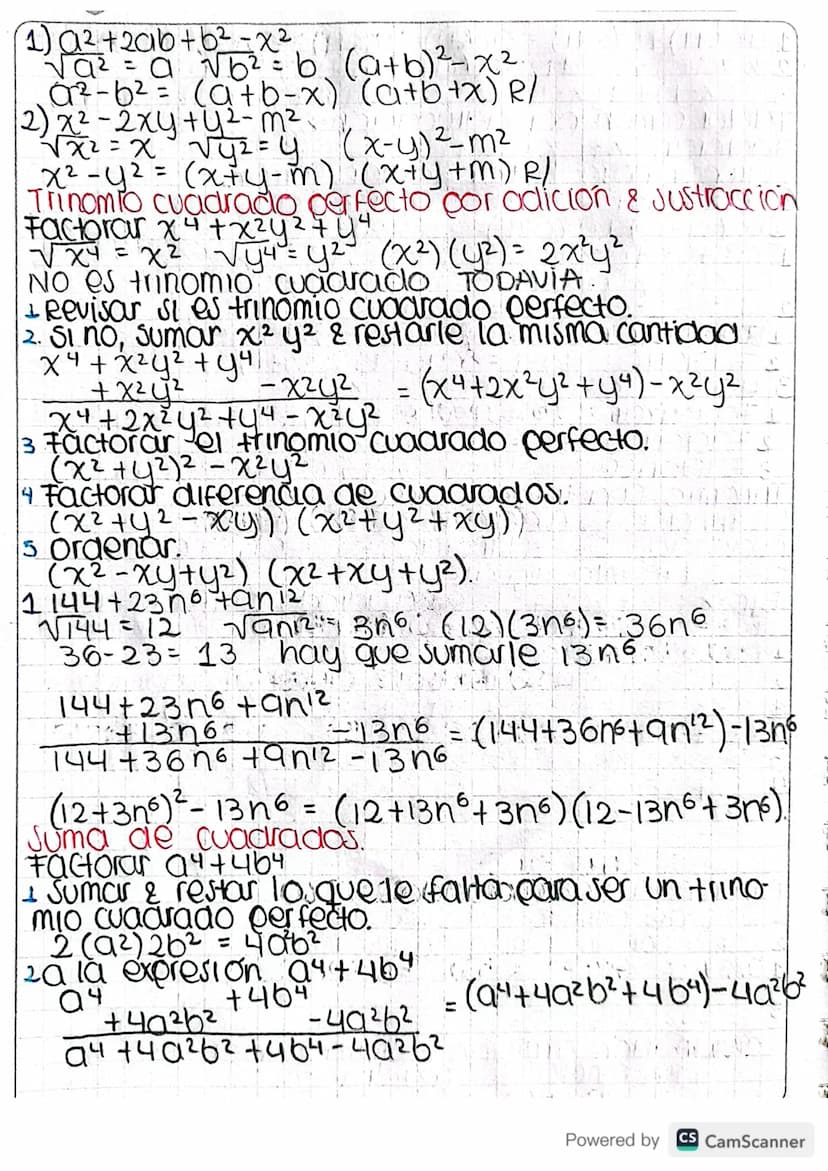 1) a² + 2ab + b² - x²
√a² = a √b² = b (a+b)² - x²
a² - b² = (a+b-x) (a+b+x) R/
2) x² - 2xy + y² - m²
√x² = x √y² = y (x-y)² - m²
x² - y² = (x+y-m) (x+y+m) R/
Trinomio cuadrado perfecto por adicion & sustraccion
Factorar x⁴ + x²y² + y⁴
√x⁴ = x² √y⁴ = y² (x²) (y²) = 2x²y²
NO es trinomio cuadrado TODAVIA.
1 Revisar si es trinomio cuadrado perfecto.
2. Si no, sumar x² y² & restarle la misma cantidad
x⁴ + x²y² + y⁴
+ x²y² - x²y² = (x⁴+2x²y²+y⁴) - x²y²
x⁴ + 2x²y² + y⁴ - x²y²
3 Factorar el trinomio cuadrado perfecto.
(x² + y²)² - x²y²
4 Factorar diferencia de cuadrados.
(x² + y² - xy) (x² + y² + xy)
5 Ordenar.
(x² - xy + y²) (x² + xy + y²).
1 144 + 23n⁶ + 9n¹²
√144 = 12 √9n¹² = 3n⁶ (12)(3n⁶) = 36n⁶
36 - 23 = 13 hay que sumarle 13n⁶
144 + 23n⁶ + 9n¹²
+ 13n⁶ - 13n⁶ = (144+36n⁶+9n¹²) - 13n⁶
144 + 36n⁶ + 9n¹² - 13n⁶
(12+3n⁶)² - 13n⁶ = (12+13n⁶+3n⁶)(12-13n⁶+3n⁶).
Suma de cuadrados.
Factorar a⁴ + 4b⁴
1 Sumar & restar lo que le falta para ser un trino-
mio cuadrado perfecto.
2(a²)2b² = 4a²b²
2 a la expresión a⁴ + 4b⁴
a⁴ + 4b⁴
+ 4a²b² - 4a²b² = (a⁴+4a²b²+4b⁴) - 4a²b²
a⁴ + 4a²b² + 4b⁴ - 4a²b²
Powered by CS CamScanner